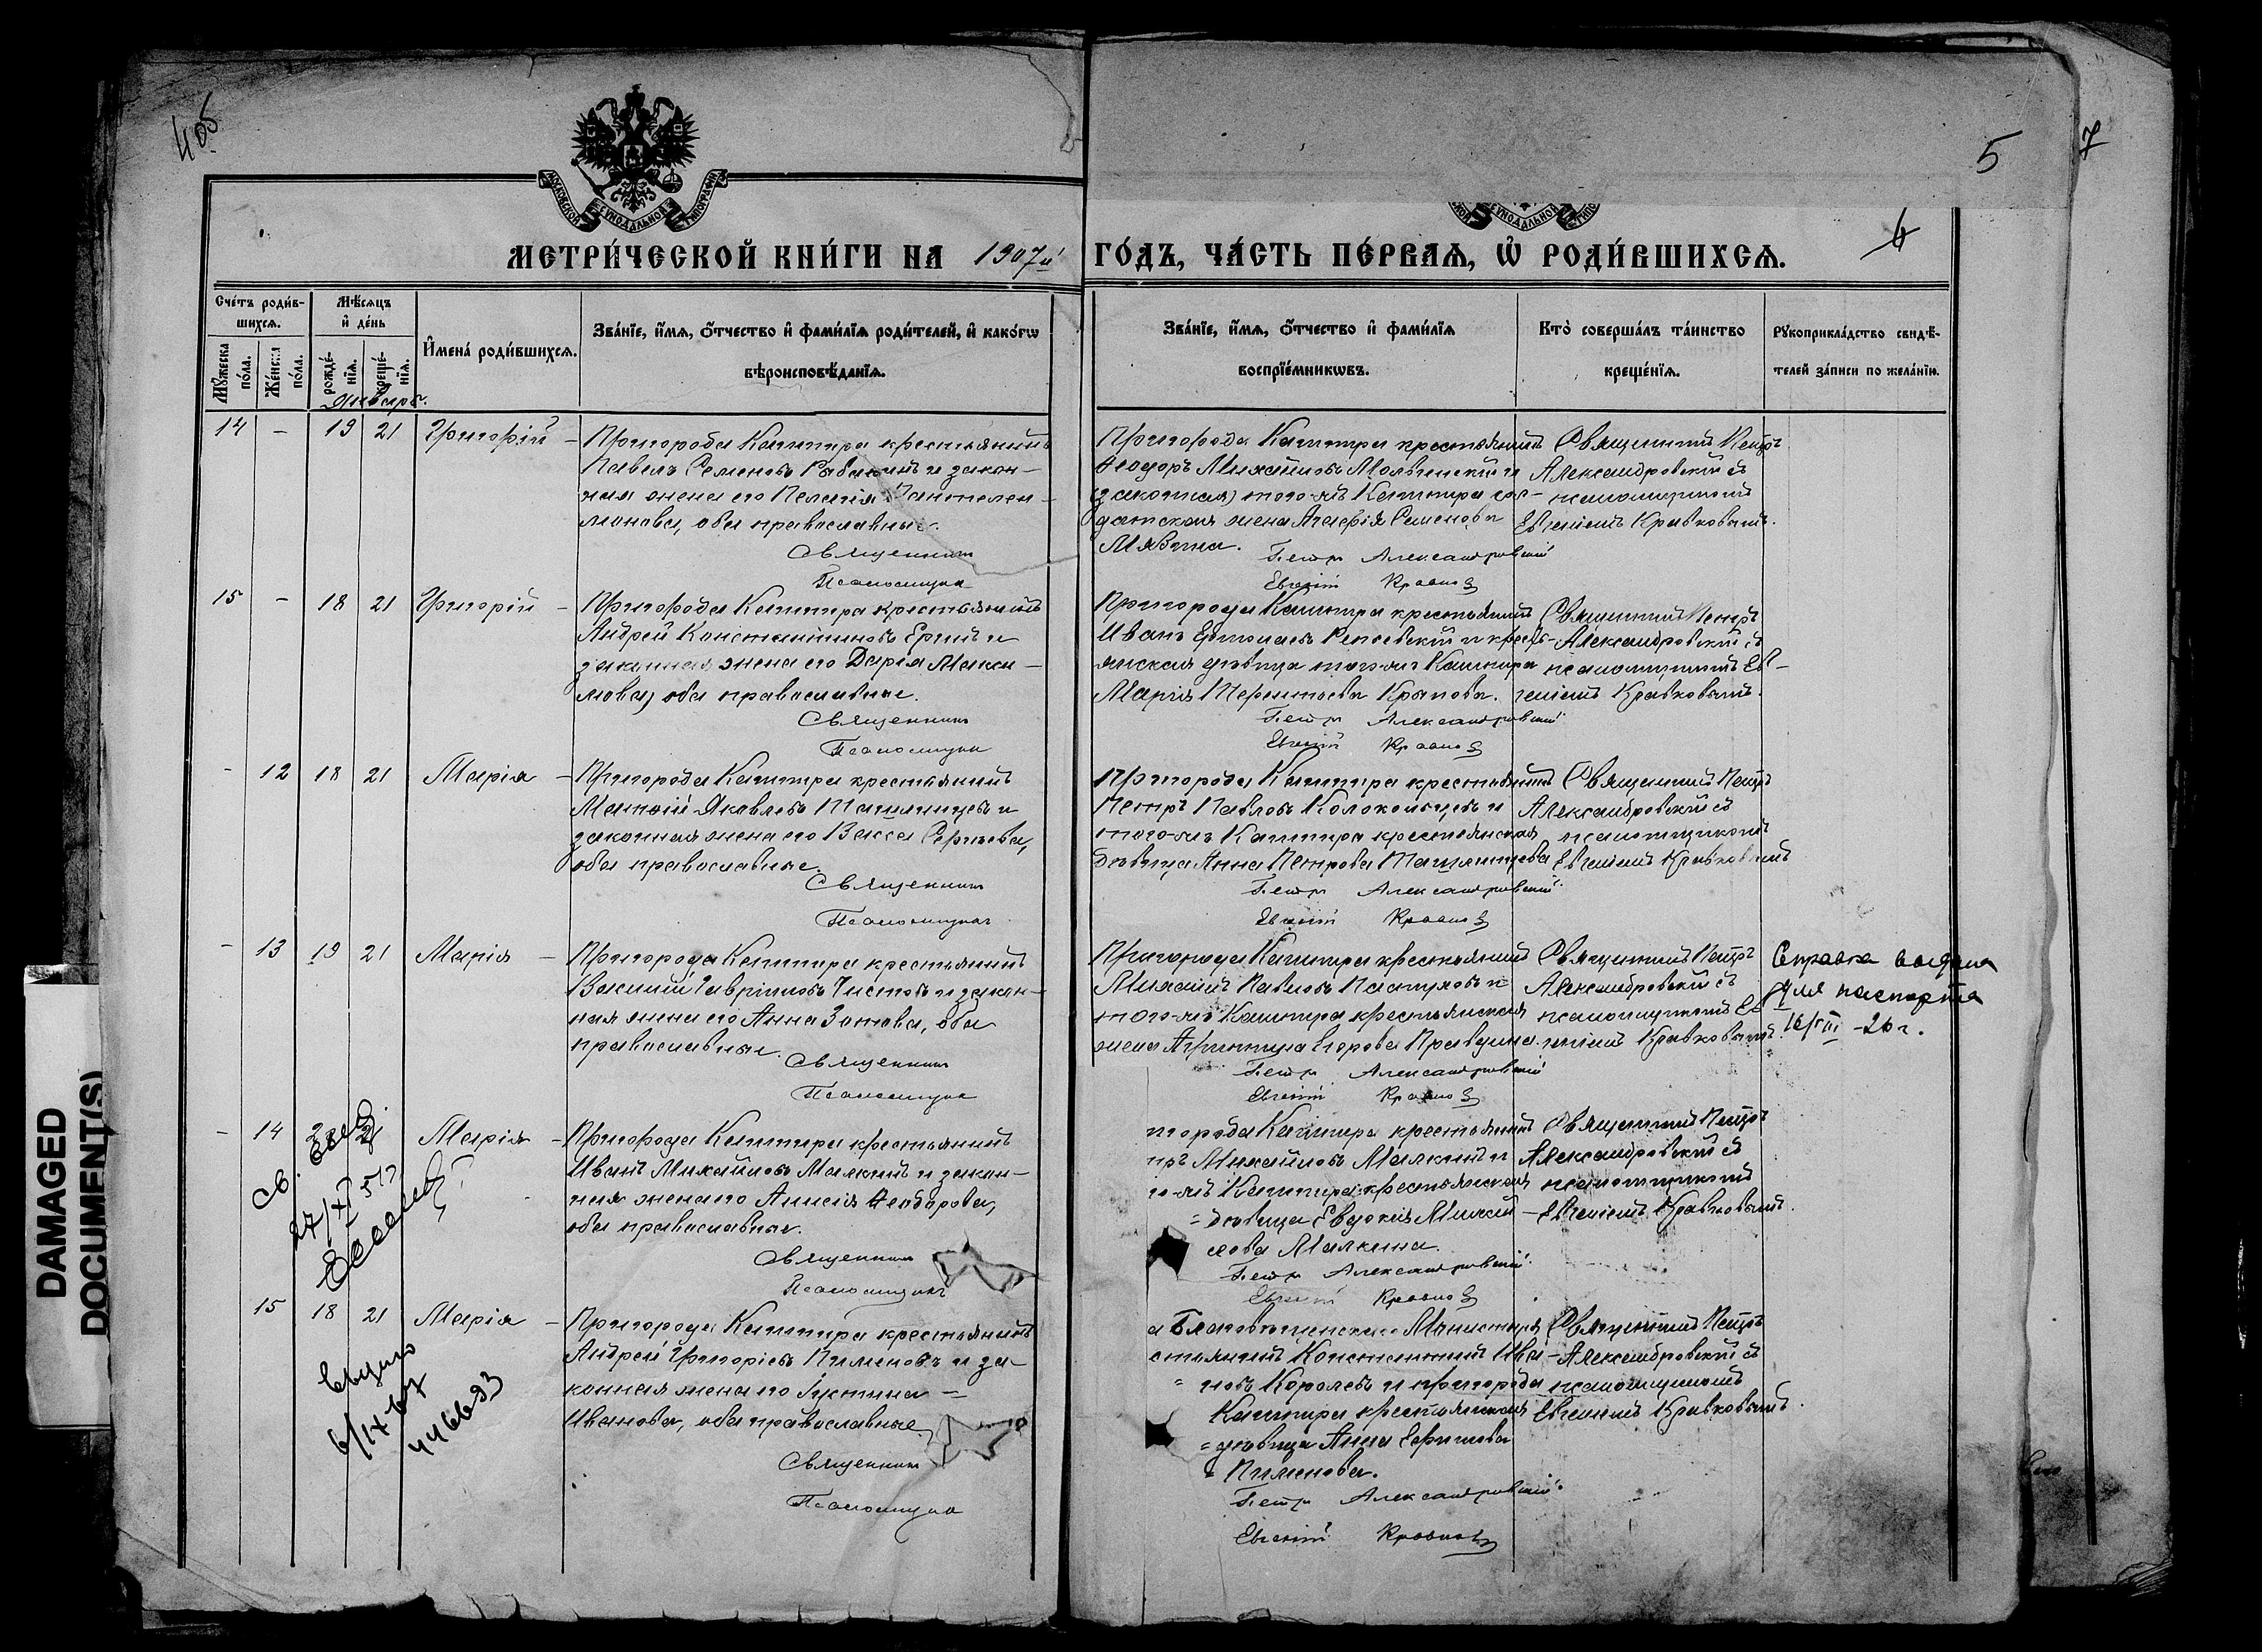 4 об
5
7
6
МОСКОВСКОЙ СѴНОДАЛЬНОЙ ТИПОГРАФІИ
СѴНОДАЛЬНОЙ
МЕТРИ́ЧЕСКОЙ КНИ́ГИ НА 1907й ГО́ДЪ, ЧА́СТЬ ПЕ́РВАЯ, Ѡ РОДИ́ВШИХСЯ.
Сче́тъ роди́в-
шихся.
Мѣ́сяцъ
и де́нь
Му́жеска
по́ла.
Же́нска
по́ла.
рожде́-
нія.
креще́-
нія.
Имена́ роди́вшихся.
Зва́ніе, и́мя, о́тчество и фами́лія роди́телей, и како́гѡ
вѣроисповѣ́данія.
Зва́ніе, и́мя, о́тчество и фами́лія
воспріе́мникѡвъ.
Кто̀ соверша́лъ та́инство
креще́нія.
Рукоприкла́дство свидѣ́-
телей за́писи по жела́нію.
Январь.
14 - 19 21 Григорій -
Пригорода Кашпира крестьянинъ
Павелъ Семеновъ и закон-
ная жена его Пелагія Пантелей-
монова, оба православные.
Священникъ
Псаломщикъ
Пригорода Кашпира крестьянинъ
Ѳеодоръ Михайловъ и
(законная) того-жъ Кашпира сол-
датская жена Агафія Семенова
Петръ Александровскій
Евгеній Кравков
Священникъ Петръ
Александровскій съ
псаломщикомъ
Евгеніемъ Кравковымъ.
15 - 18 21 Григорій -
Пригорода Кашпира крестьянинъ
Андрей Константиновъ Ергинъ и
законная жена его Дарія Макси-
мова, оба православные.
Священникъ
Псаломщикъ
Пригорода Кашпира крестьянинъ
Иванъ Ермолаевъ и кресть-
янская дѣвица того-жъ Кашпира
Марія Терентьева
Петръ Александровскій
Евгеній Кравков
Священникъ Петръ
Александровскій съ
псаломщикомъ Ев-
геніемъ Кравковымъ.
- 12 18 21 Марія -
Пригорода Кашпира крестьянинъ
Матѳій Яковлевъ Ташлинцевъ и
законная жена его Васса Сергѣева,
оба православные.
Священникъ
Псаломщикъ
Пригорода Кашпира крестьянинъ
Петръ Павловъ Колокольцевъ и
того-жъ Кашпира крестьянская
дѣвица Анна Петрова Ташлинцева
Петръ Александровскій
Евгеній Кравков
Священникъ Петръ
Александровскій съ
псаломщикомъ
Евгеніемъ Кравковымъ
- 13 19 21 Марія -
Пригорода Кашпира крестьянинъ
Василій Гавріиловъ Чистовъ и закон-
ная жена его Анна Зотова, оба
православные.
Священникъ
Псаломщикъ
Пригорода Кашпира крестьянинъ
Михаилъ Павловъ Пастуховъ и
того-жъ Кашпира крестьянская
жена Агриппина Егорова Правдина
Петръ Александровскій
Евгеній Кравков
Священникъ Петръ
Александровскій съ
псаломщикомъ Ев-
геніемъ Кравковымъ.
Справка выдана
для паспорта
16/VIII - 26 г.
- 14 21 Марія -
Св.
27/XI 57
Пригорода Кашпира крестьянинъ
Иванъ Михайловъ Малкинъ и закон-
ная жена его Анисія Ѳеодорова,
оба православные.
Священникъ
Псаломщикъ
города Кашпира крестьянинъ
тръ Михайловъ Малкинъ и
о-жъ Кашпира крестьянская
= дѣвица Евдокія Михай-
лова Малкина.
Петръ Александровскій
Евгеній Кравков
Священникъ Петръ
Александровскій съ
псаломщикомъ
- Евгеніемъ Кравковымъ.
15 18 21 Марія -
6/IX 67
446693
Пригорода Кашпира крестьянинъ
Андрей Григорьевъ Пименовъ и за-
конная жена его Іустина =
Иванова, оба православные
Священникъ
Псаломщикъ
а Благовѣщенскаго Монастыря
стьянинъ Константинъ Ива-
= новъ Королевъ и пригорода
Кашпира крестьянская
= дѣвица Анна Ефимова
= Пименова.
Петръ Александровскій
Евгеній Кравков
Священникъ Петръ
Александровскій съ
псаломщикомъ
Евгеніемъ Кравковымъ.
DAMAGED
DOCUMENT(S)